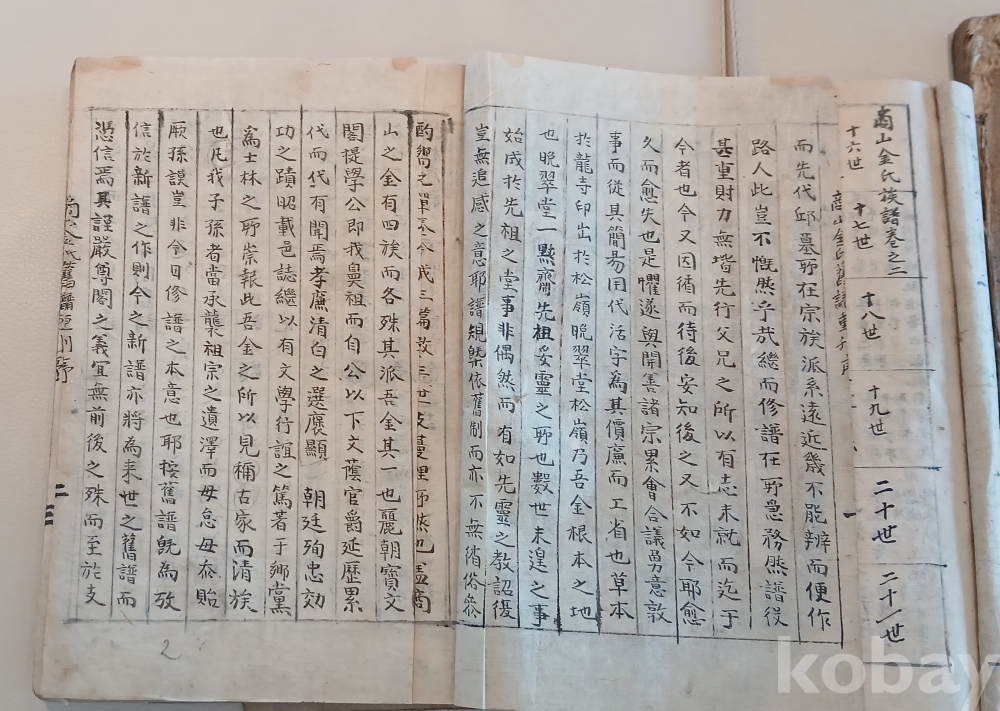 商山金氏族譜卷之二
十六世
十七世
十八世
十九世
二十世
二十一世
而先代邱墓所在宗族派系遠近幾不能辨而便作
路人此豈不慨然乎哉繼而修譜在所急務然譜役
甚重財力無堦先行父兄之所以有志未就而迄于
今者也今又因循而待後安知後之又不如今耶愈
久而愈失也是懼遂與開善諸宗累會合議勇意敦
事而從其簡昜因代活字爲其價廉而工省也草本
於龍寺印出於松嶺晩翠堂松嶺乃吾金根本之地
也晩翠堂一默齋先祖妥靈之所也數世未遑之事
始成於先祖之堂事非偶然而有如先靈之教詔後
豈無追感之意耶譜規槩依舊制而亦不無循俗參
酌嚮之單
山之金有四族而各殊其派吾金其一也麗朝寶文
閣提學公即我鼻祖而自公以下文蔭官爵延歷累
代而代有聞焉孝廉清白之選褒顯 朝廷殉忠効
功之蹟昭載邑誌繼以有文學行誼之篤著于鄉黨
爲士林之所崇報此吾金之所以見稱古家而清族
也凡我子孫者當承襲祖宗之遺澤而毋怠毋忝貽
厥孫謨豈非今日修譜之本意也耶按舊譜旣為攷
信於新譜之作則今之新譜亦將為来世之舊譜而
憑信焉其謹嚴尊閣之義宜無前後之殊而至於支
二
2
kobay